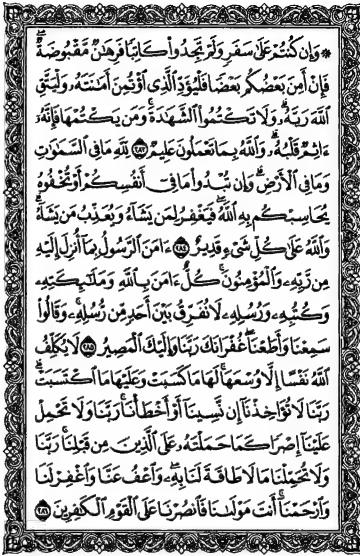 ۞ وَإِن كُنتُمْ عَلَىٰ سَفَرٍ وَلَمْ تَجِدُوا۟ كَاتِبًا فَرِهَـٰنٌ مَّقْبُوضَةٌ ۖ
فَإِنْ أَمِنَ بَعْضُكُم بَعْضًا فَلْيُؤَدِّ ٱلَّذِى ٱؤْتُمِنَ أَمَـٰنَتَهُۥ وَلْيَتَّقِ
ٱللَّهَ رَبَّهُۥ ۗ وَلَا تَكْتُمُوا۟ ٱلشَّهَـٰدَةَ ۚ وَمَن يَكْتُمْهَا فَإِنَّهُۥٓ
ءَاثِمٌ قَلْبُهُۥ ۗ وَٱللَّهُ بِمَا تَعْمَلُونَ عَلِيمٌ ٢٨٣ لِّلَّهِ مَا فِى ٱلسَّمَـٰوَٰتِ
وَمَا فِى ٱلْأَرْضِ ۗ وَإِن تُبْدُوا۟ مَا فِىٓ أَنفُسِكُمْ أَوْ تُخْفُوهُ
يُحَاسِبْكُم بِهِ ٱللَّهُ ۖ فَيَغْفِرُ لِمَن يَشَآءُ وَيُعَذِّبُ مَن يَشَآءُ ۗ
وَٱللَّهُ عَلَىٰ كُلِّ شَىْءٍ قَدِيرٌ ٢٨٤ ءَامَنَ ٱلرَّسُولُ بِمَآ أُنزِلَ إِلَيْهِ
مِن رَّبِّهِۦ وَٱلْمُؤْمِنُونَ ۚ كُلٌّ ءَامَنَ بِٱللَّهِ وَمَلَـٰٓئِكَتِهِۦ
وَكُتُبِهِۦ وَرُسُلِهِۦ لَا نُفَرِّقُ بَيْنَ أَحَدٍ مِّن رُّسُلِهِۦ ۚ وَقَالُوا۟
سَمِعْنَا وَأَطَعْنَا ۖ غُفْرَانَكَ رَبَّنَا وَإِلَيْكَ ٱلْمَصِيرُ ٢٨٥ لَا يُكَلِّفُ
ٱللَّهُ نَفْسًا إِلَّا وُسْعَهَا ۚ لَهَا مَا كَسَبَتْ وَعَلَيْهَا مَا ٱكْتَسَبَتْ ۗ
رَبَّنَا لَا تُؤَاخِذْنَآ إِن نَّسِينَآ أَوْ أَخْطَأْنَا ۚ رَبَّنَا وَلَا تَحْمِلْ
عَلَيْنَآ إِصْرًا كَمَا حَمَلْتَهُۥ عَلَى ٱلَّذِينَ مِن قَبْلِنَا ۚ رَبَّنَا
وَلَا تُحَمِّلْنَا مَا لَا طَاقَةَ لَنَا بِهِۦ ۖ وَٱعْفُ عَنَّا وَٱغْفِرْ لَنَا
وَٱرْحَمْنَآ ۚ أَنتَ مَوْلَىٰنَا فَٱنصُرْنَا عَلَى ٱلْقَوْمِ ٱلْكَـٰفِرِينَ ٢٨٦